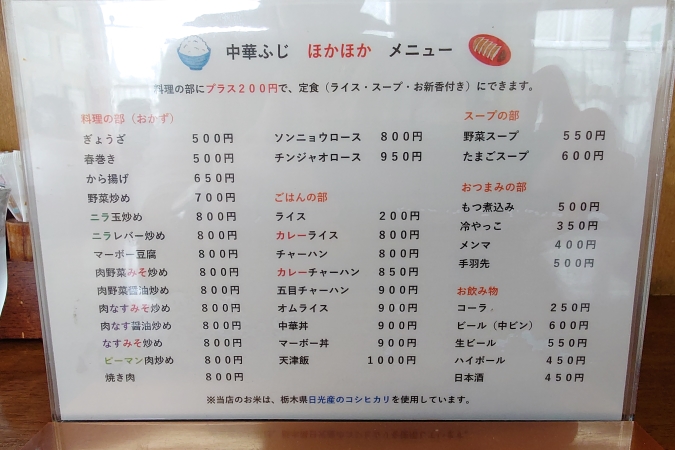 中華ふじ ほかほか メニュー
料理の部にプラス200円で、定食(ライス・スープ・お新香付き)にできます。
料理の部(おかず)
ぎょうざ 500円
春巻き 500円
から揚げ 650円
野菜炒め 700円
ニラ玉炒め 800円
ニラレバー炒め 800円
マーボー豆腐 800円
肉野菜みそ炒め 800円
肉野菜醤油炒め 800円
肉なすみそ炒め 800円
肉なす醤油炒め 800円
なすみそ炒め 800円
ピーマン肉炒め 800円
焼き肉 800円
ソンニョウロース 800円
チンジャオロース 950円
ごはんの部
ライス 200円
カレーライス 800円
チャーハン 800円
カレーチャーハン 850円
五目チャーハン 900円
オムライス 900円
中華丼 900円
マーボー丼 900円
天津飯 1000円
スープの部
野菜スープ 550円
たまごスープ 600円
おつまみの部
もつ煮込み 500円
冷やっこ 350円
メンマ 400円
手羽先 500円
お飲み物
コーラ 250円
ビール(中ビン) 600円
生ビール 550円
ハイボール 450円
日本酒 450円
※当店のお米は、栃木県日光産のコシヒカリを使用しています。